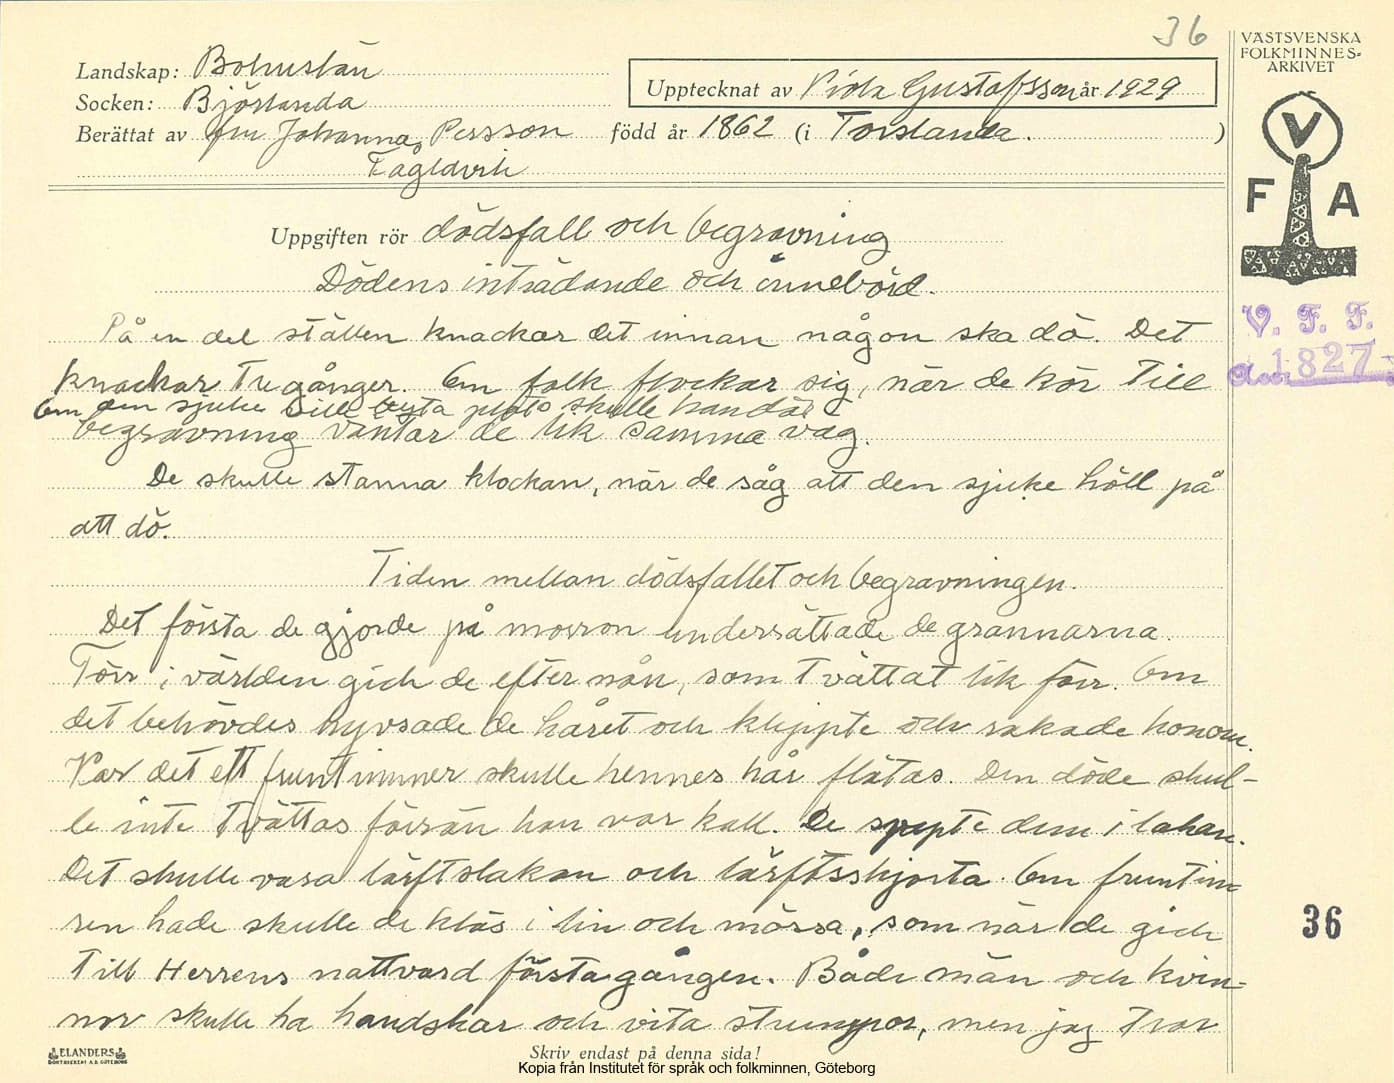 36
VÄSTSVENSKA
FOLKMINNES-
ARKIVET
Landskap: Bohuslän
Socken: Björlanda
Upptecknat av Viola Gustafsson år 1929
Berättat av fru Johanna Persson född år 1862 (i Torslanda. )
Fågelvik
V
F A
Uppgiften rör dödsfall och begravning
Dödens inträdande och innebörd.
V. F. F.
Acc. 1827
På en del ställen knackar det innan någon ska dö. Det
knackar tre gånger. Om folk flockar sig, när de kör till
Om den sjuke ville byta plats skulle han dö
begravning väntar de lik samma väg.
De skulle stanna klockan, när de såg att den sjuke höll på
att dö.
Tiden mellan dödsfallet och begravningen.
Det första de gjorde på morron underrättade de grannarna.
Förr i världen gick de efter nån, som tvättat lik förr. Om
det behövdes hyvsade de håret och klippte och rakade honom.
Var det ett fruntimmer skulle hennes hår flätas. Den döde skul-
le inte tvättas förrän han var kall. De svepte dem i lakan.
Det skulle vara lärftslakan och lärftsskjorta. Om fruntim
ren hade skulle de kläs i lin och mössa, som när de gick
till Herrens nattvard första gången. Både män och kvin-
nor skulle ha handskar och vita strumpor, men jag tror
36
ELANDERS
BOKTRYCKERI A.B. GÖTEBORG
Skriv endast på denna sida!
Kopia från Institutet för språk och folkminnen, Göteborg